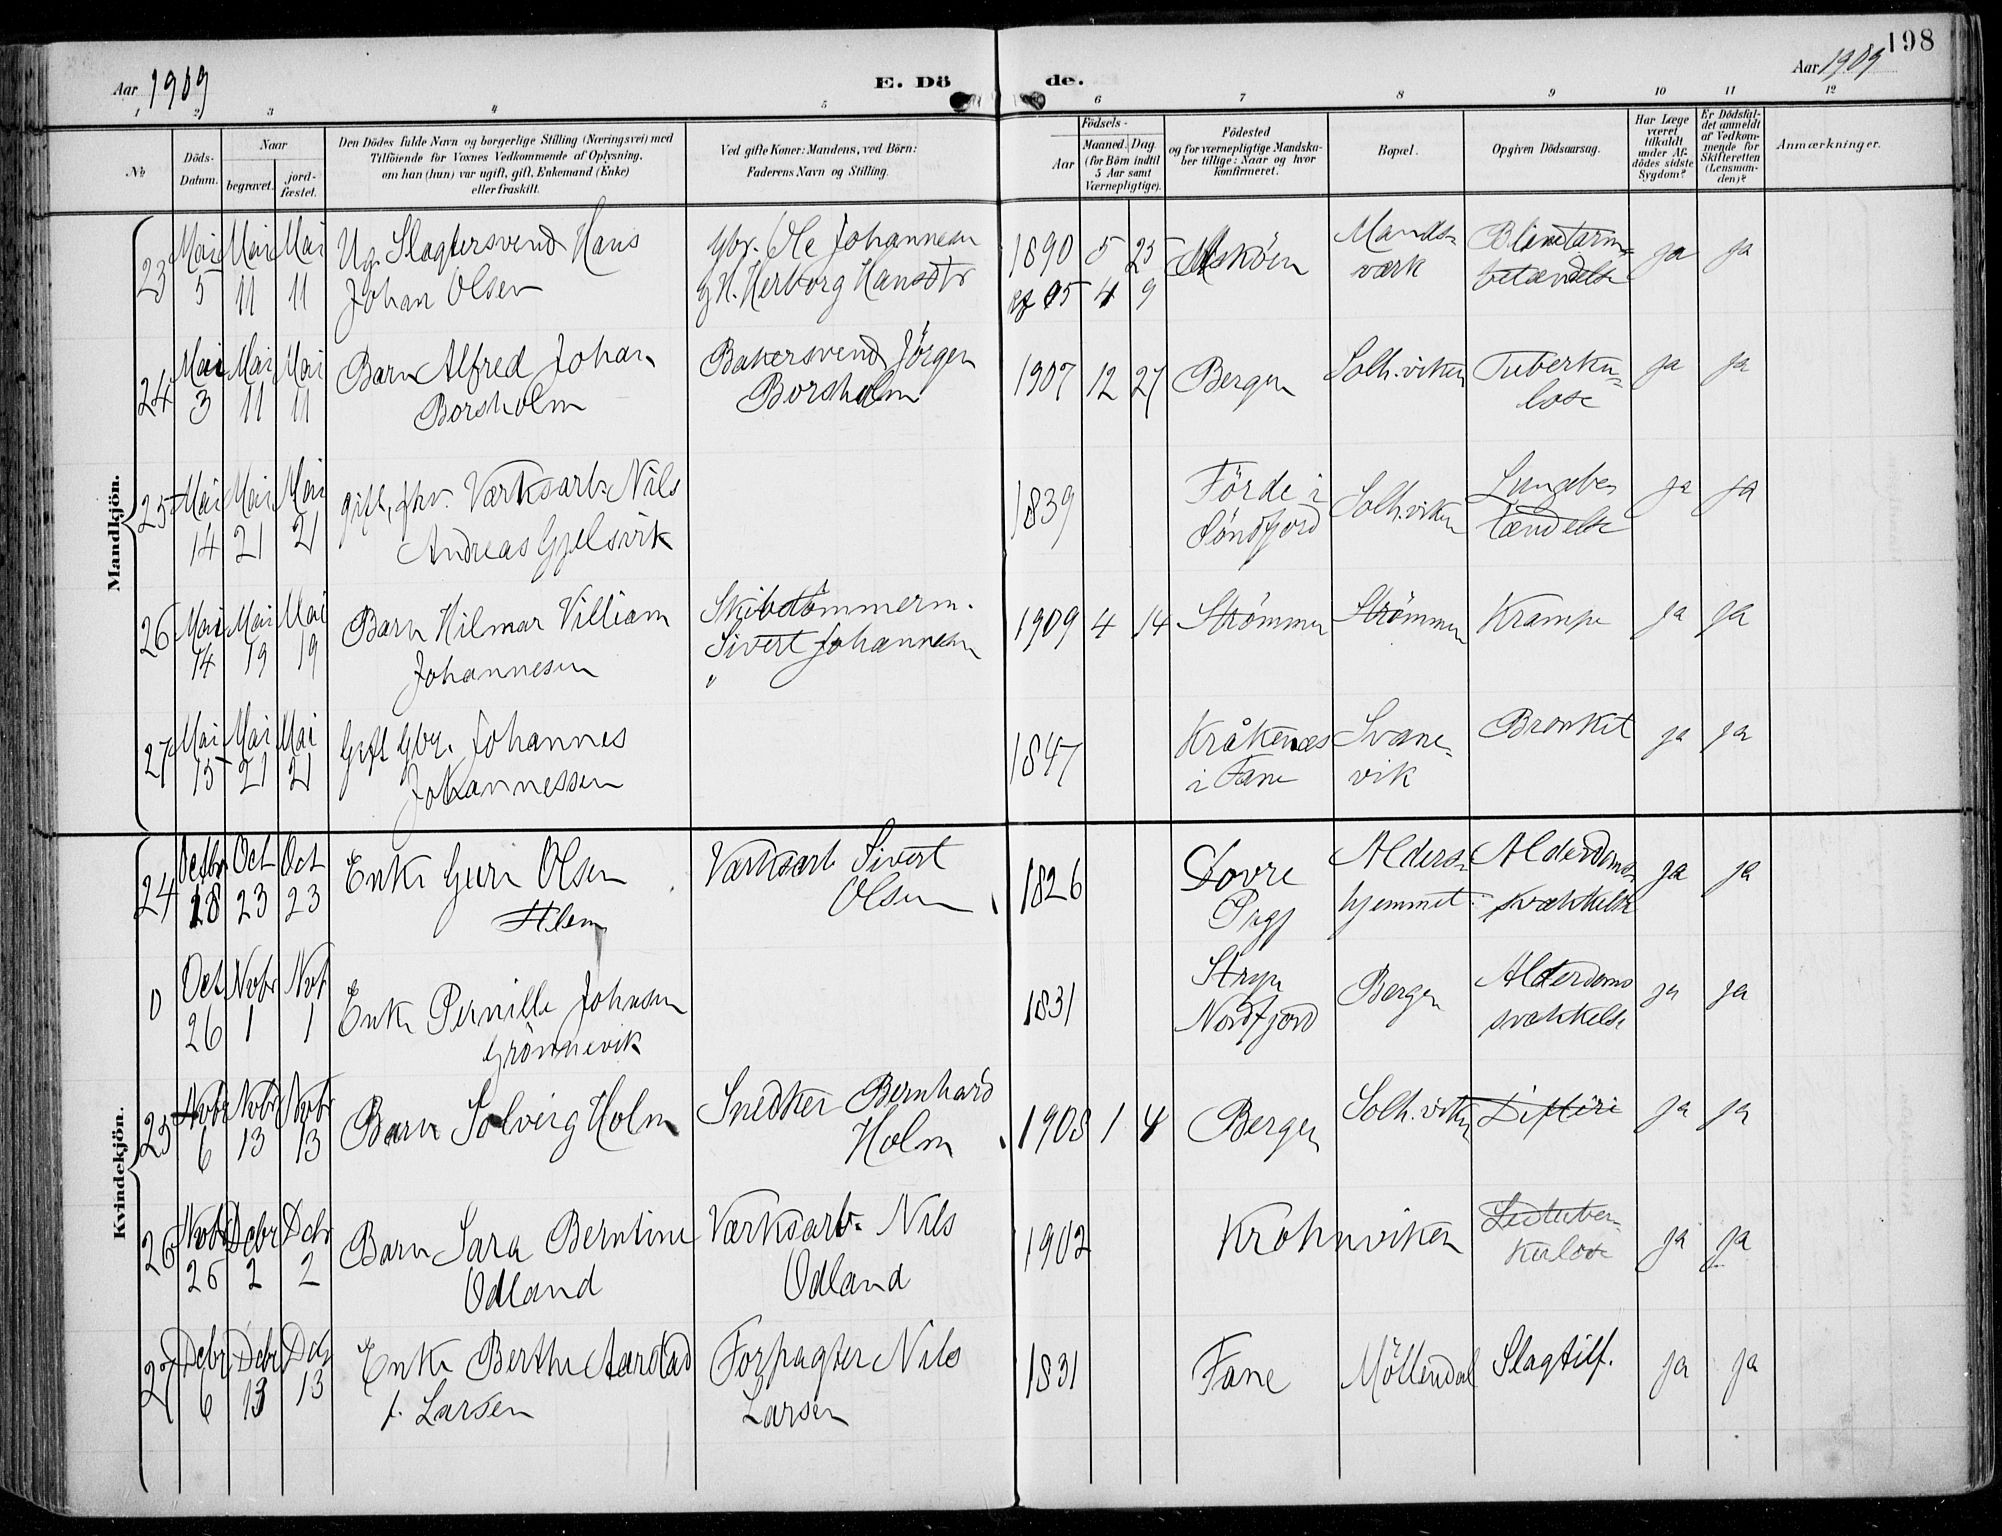 198
Aar 1909
E. Döde.
Aar 1909
1 2 3 4 5 6 7 8 9 10 11 12
No
Döds-
Datum.
Naar
begravet.
jord-
fæstet.
Den Dödes fulde Navn og borgerlige Stilling (Næringsvei) med
Tilföiende for Voxnes Vedkommende af Oplysning,
om han (hun) var ugift, gift, Enkemand (Enke)
eller fraskilt.
Ved gifte Koner: Mandens, ved Börn:
Faderens Navn og Stilling.
Födsels-
Aar
Maaned. Dag
(for Börn indtil
5 Aar samt
Værnepligtige).
Födested
og for værnepligtige Mandska-
ber tillige: Naar og hvor
konfirmeret.
Bopæl.
Opgiven Dödsaarsag.
Har Læge
været
tilkaldt
under Af-
dödes sidste
Sygdom?
Er Dödsfal-
det anmeldt
af Vedkom-
mende for
Skifteretten
(Lensman-
den)?
Anmærkninger.
Mandkjön.
23 Mai 5 Mai 11 Mai 11
Ug. Slagtersvend Hans
Johan Olsen
Gbr. Ole Johannesen
g. H. Herborg Hansdtr
1890 5 25
05 4 9
Asköen
Mands-
værk
Blindtarm-
betændelse
ja ja
24 Mai 3 Mai 11 Mai 11
Barn Alfred Johan
Borsholm
Bakersvend Jörgen
Borsholm
1907 12 27
Bergen
Solh.viken
Tuberku-
lose
ja ja
25 Mai 14 Mai 21 Mai 21
gift, fhv. Værksarb. Nils
Andreas Gjelsvik
1839
Förde i
Söndfjord
Solh.viken
Lungebe-
tændelse
ja ja
26 Mai 14 Mai 19 Mai 19
Barn Hilmar Villiam
Johannesen
Skibstömmerm.
Sivert Johannesen
"
1909 4 14
Strömmen
Strömmen
Krampe
ja ja
27 Mai 15 Mai 21 Mai 21
Gift Gbr. Johannes
Johannessen
1847
Kråkenæs
i Fane
Svane-
vik
Bronkit
ja ja
Kvindekjön.
24 Octbr 18 Oct 23 Oct 23
Enke Guri Olsen
Værksarb Sivert
Olsen
1826
Dovre
Prgj
Alders-
hjemmet
Alderdoms-
svækkelse
ja ja
0 Oct 26 Novbr 1 Nov 1
Enke Pernille Johnsen
Grönnevik
1831
Stryn
Nordfjord
Bergen
Alderdoms
svækkelse
ja ja
25 Novbr 6 Novbr 13 Novbr 13
Barn Solveig Holm
Snedker Bernhard
Holm
1908 1 4
Bergen
Solh.viken
Difteri
ja ja
26 Novbr 26 Decbr 2 Dcbr 2
Barn Sara Berntine
Odland
Værksarb. Nils
Odland
1902
Krohnviken
Ledtuber-
kulose
ja ja
27 Dcbr 6 Dcbr 13 Dcbr 13
Enke Berthe Aarstad
f. Larsen
Forpagter Nils
Larsen
1831
Fane
Möllendal
Slagtilf.
ja ja